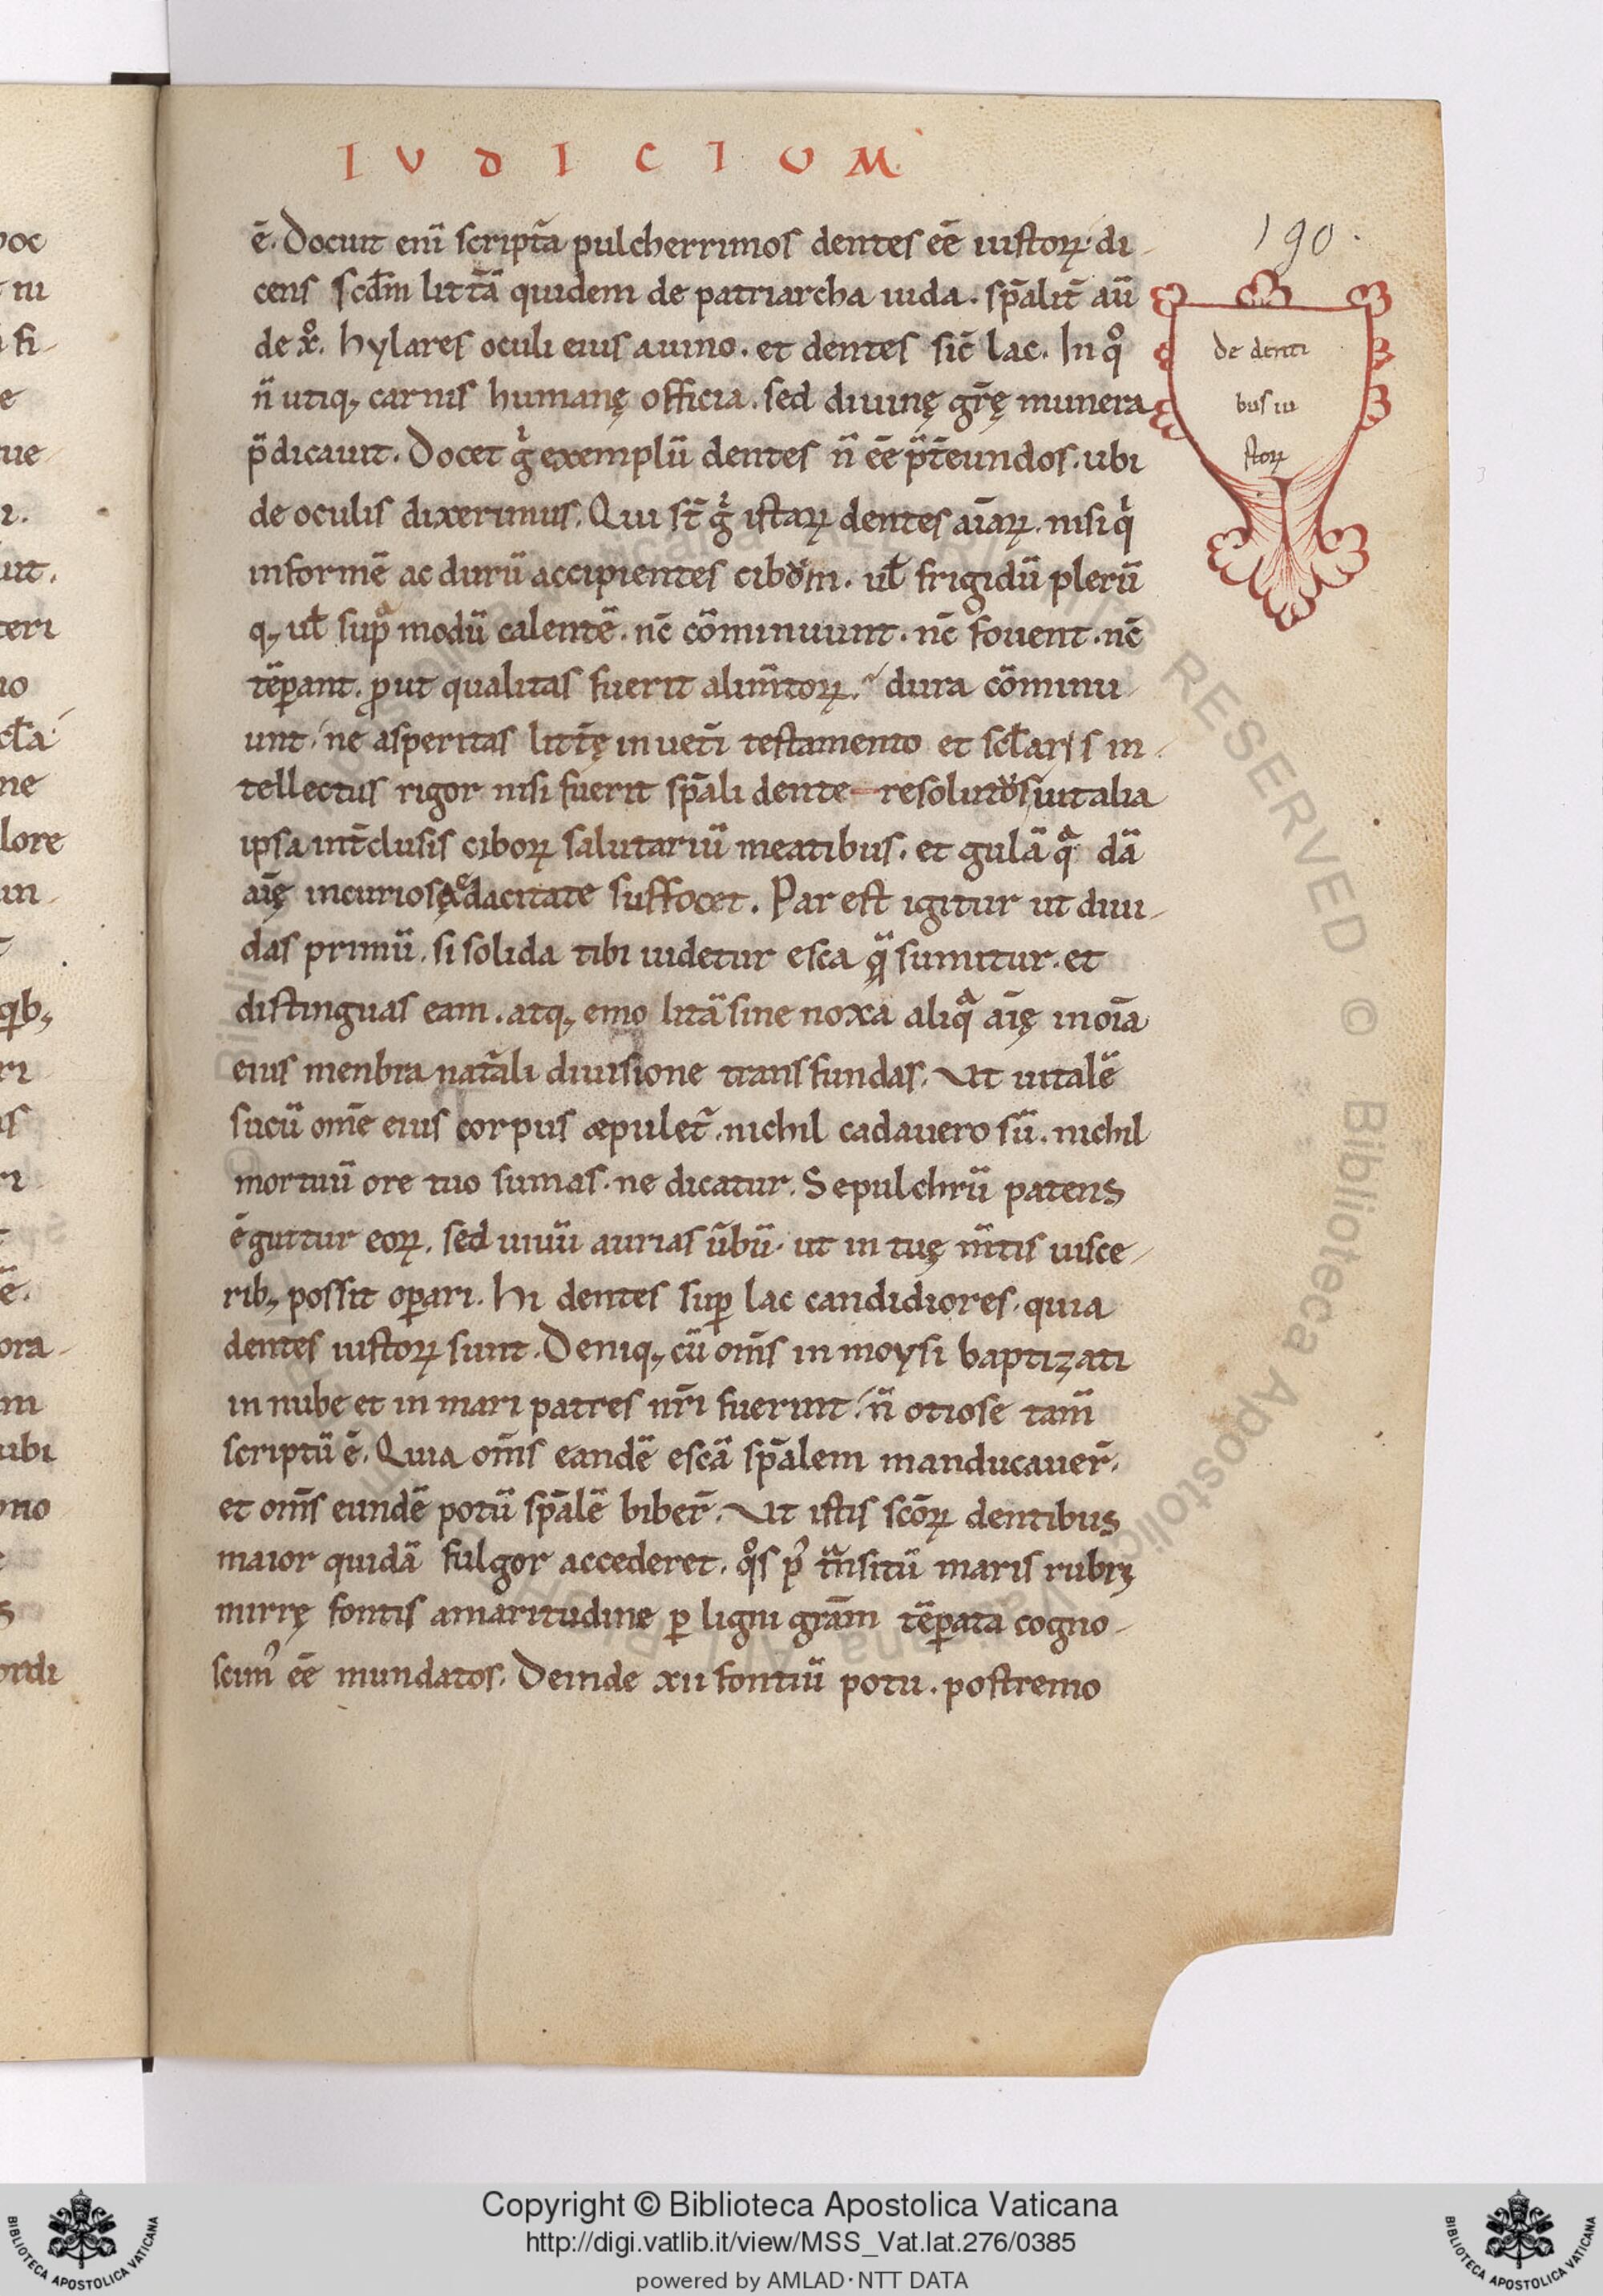 I V D I C I V M
190.
ē. Docuit eni᷒ scriptа̄ pulcherrimos dentes eē iustoꝝ. di-
cens scd̄m litt̄ā quidem de patriarcha iuda. sp̄alit̄ aū
de xͦ. hylares oculi eius a uino. et dentes sic̄ lac. In qͦ
n̄ utiq; carnis humanę officia. sed diuinę gr̄ę munera
p̄dicauit. Docet gͥ exemplū dentes n̄ eē p̄t̄eundos. ubi
de oculis dixerimus. Qui st̄ gͥ istaꝝ dentes aīaꝝ. nisi qͥ
informē ac durū accipientes cibom. ul̄ frigidū plerū
q; ul̄ supͣ modū calentē. nc̄ cōminuunt. nc̄ fouent. nc̄
tēꝑant. ꝓut qualitas fuerit alim̄toꝝ. dura cōminu-
unt. ne asperitas litt̄ę in uet̄i testamento et scl̄aris in-
tellectus rigor nisi fuerit sp̄ali dente resolutos uitalia
ipsa int̄clusis ciboꝝ salutariū meatibus. et gulā qͣ dā
aīę incuriosę edacitate suffocet. Par est igitur ut diui-
das primū. si solida tibi uidetur esca q̄ sumitur. et
distinguas eam. atq; emo litā sine noxa aliqͣ aīę in oīa
eius menbra nat̄ali diuisione transfundas. Ut uitalē
sucū om̄e eius corpus æpulet̄. nichil cadauero sū. nichil
mortuū ore tuo sumas. ne dicatur. Sepulchrū patens
ē guttur eoꝝ. sed uiuū aurias ūbū. ut in tuę m̄tis uisce-
rib; possit oꝑari. Hi dentes suꝑ lac candidiores. quia
dentes iustoꝝ sunt. Deniq; cū om̄s in moysi baptizati
in nube et in mari patres nr̄i fuerint. n̄ otiose tam̄
scriptū ē. Quia om̄s eandē escā sp̄alem manducauer̄.
et om̄s eundē potū sp̄alē biber̄. Ut istis sc̄oꝝ dentibus
maior quidā fulgor accederet. qͦs pꝰ tͣnsitū maris rubri
mirrę fontis amaritudine ꝑ ligni gr̄am tēꝑata cogno-
scimꝰ eē mundatos. Deinde xii fontiū potu. postremo
de denti
bus iu
stoꝝ
poc
fi-
e
ue-
lore
ubi
Copyright © Biblioteca Apostolica Vaticana
http://digi.vatlib.it/view/MSS_Vat.lat.276/0385
powered by AMLAD·NTT DATA
BIBLIOTECA APOSTOLICA VATICANA
BIBLIOTECA APOSTOLICA VATICANA